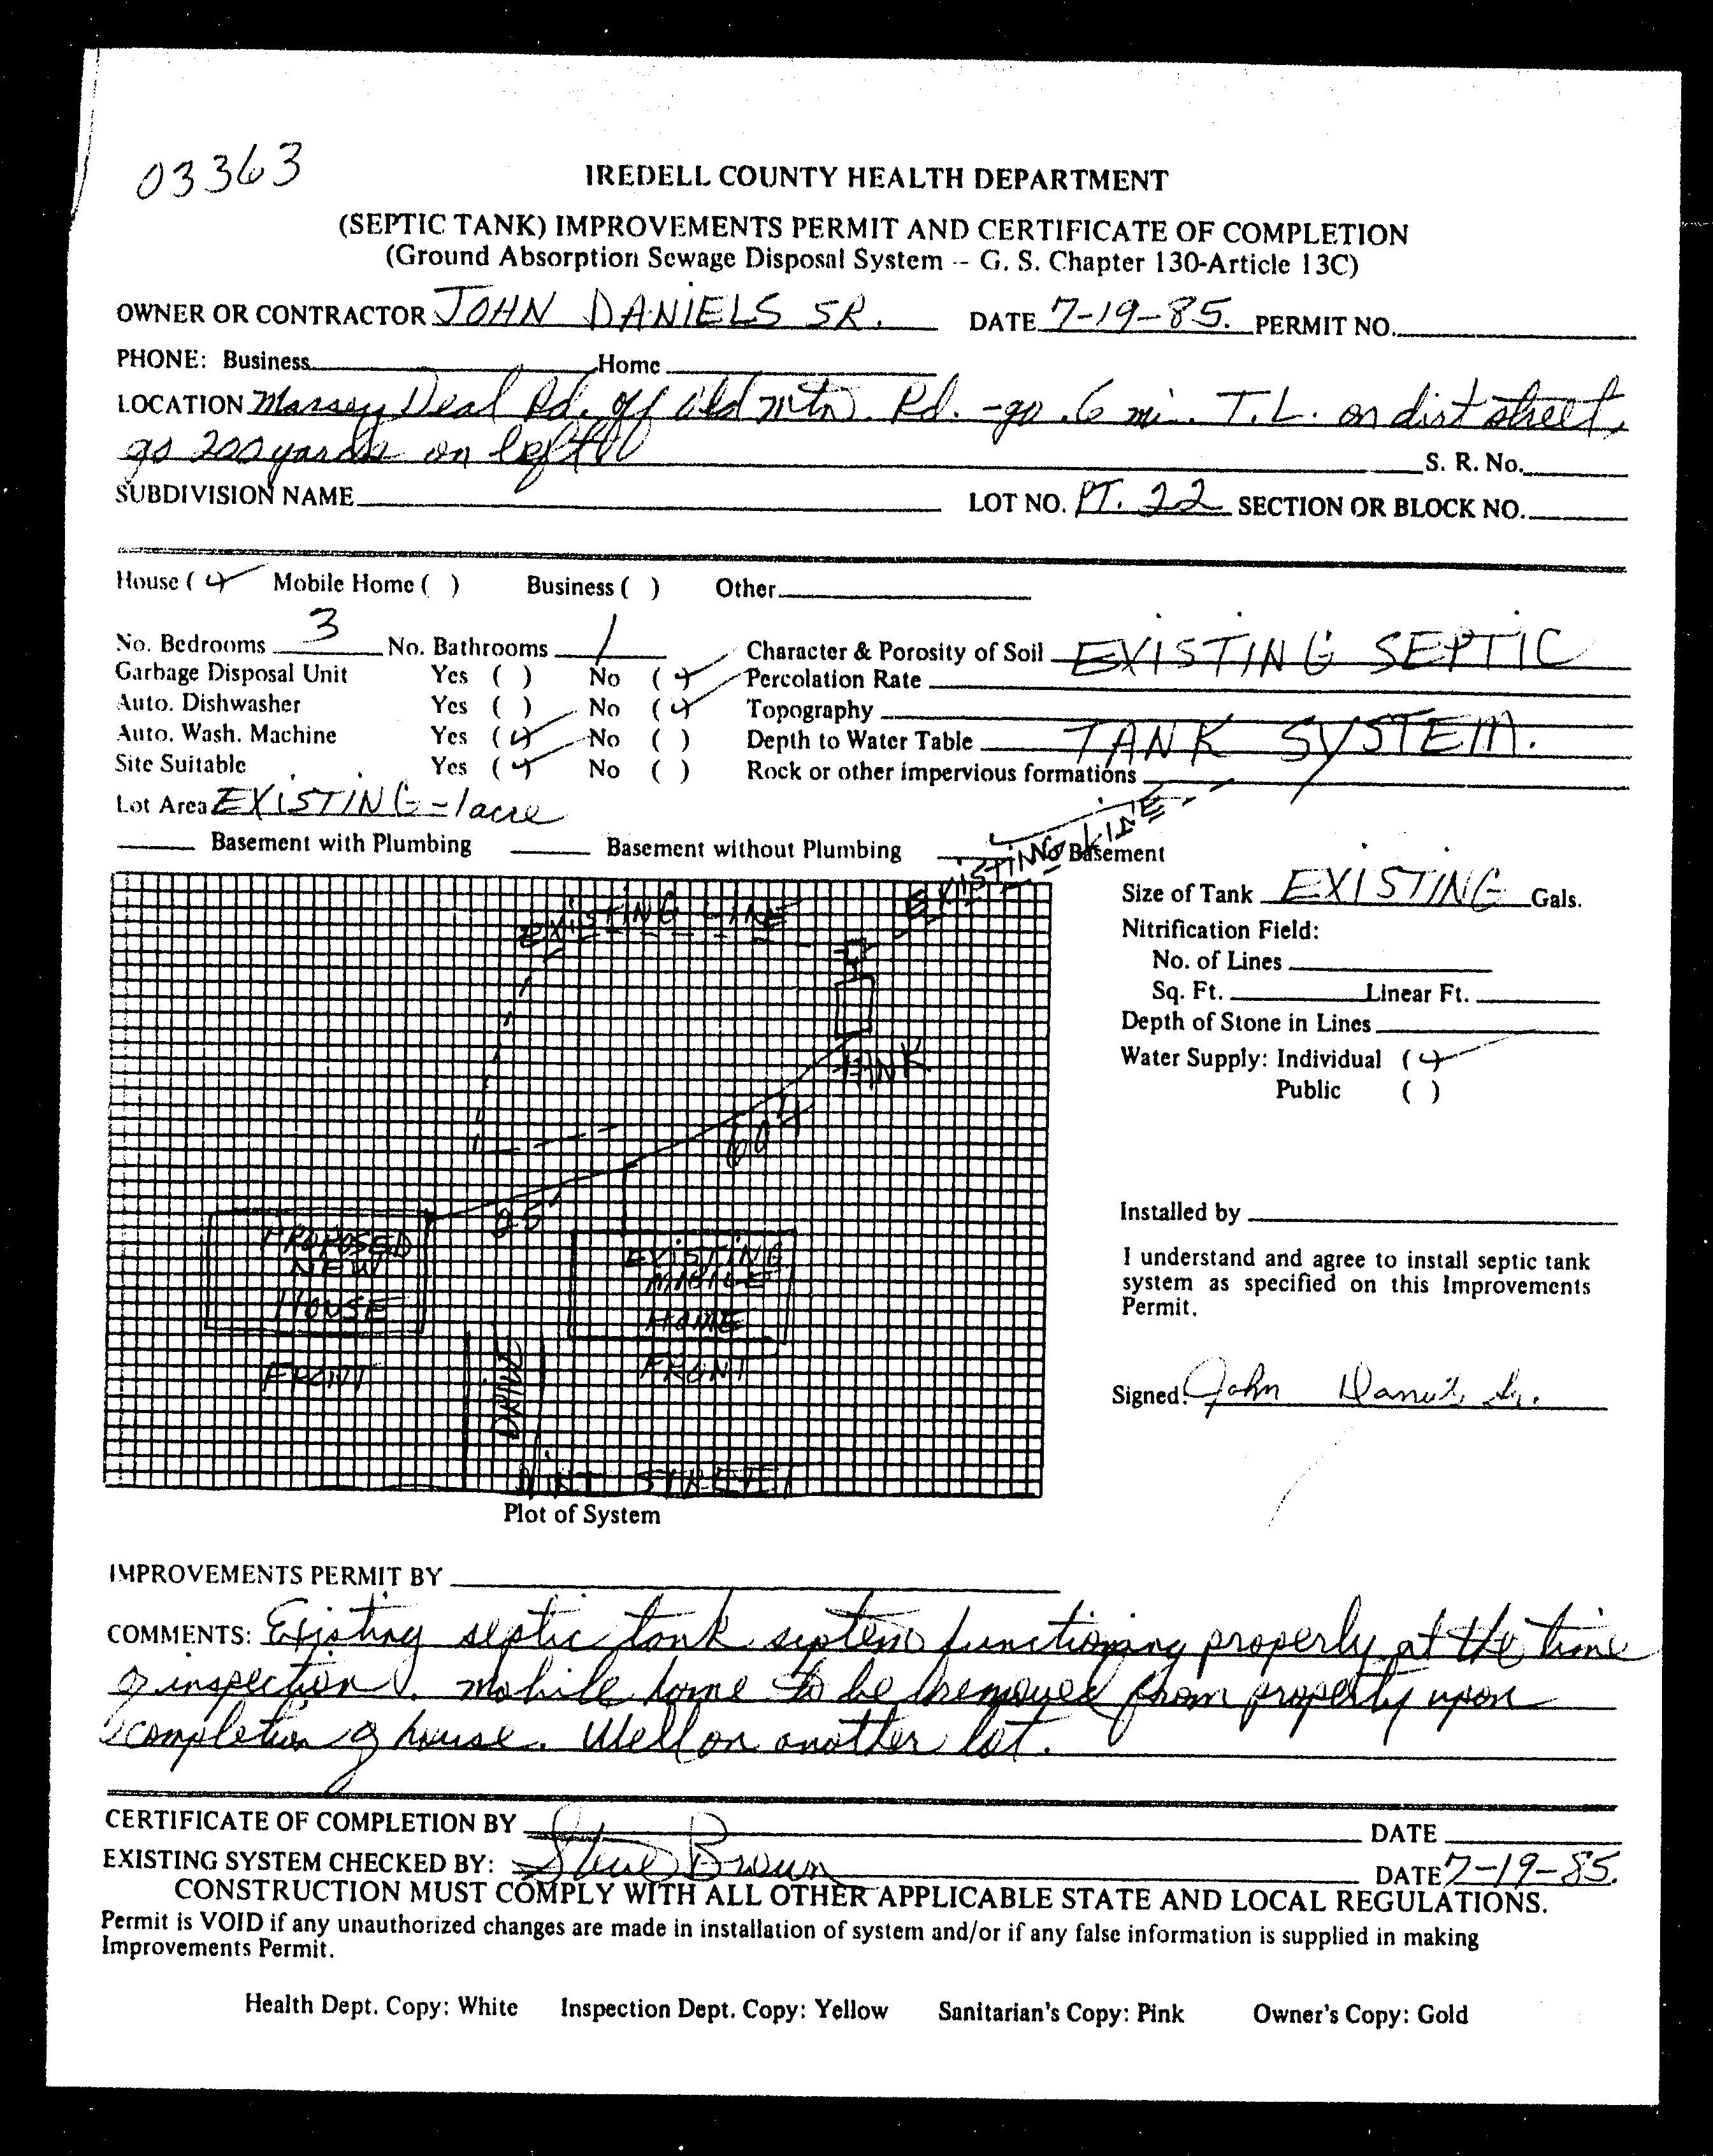 03363
IREDELL COUNTY HEALTH DEPARTMENT
(SEPTIC TANK) IMPROVEMENTS PERMIT AND CERTIFICATE OF COMPLETION
(Ground Absorption Sewage Disposal System -- G. S. Chapter 130-Article 13C)
OWNER OR CONTRACTOR JOHN DANIELS SR. DATE 7-19-85. PERMIT NO.
PHONE: Business Home
LOCATION Massey Deal Rd. off Old Mtn. Rd. - go .6 mi. T.L. on dirt street,
go 200 yards on left
S. R. No.
SUBDIVISION NAME LOT NO. PT. 22 SECTION OR BLOCK NO.
House (✓) Mobile Home ( ) Business ( ) Other
No. Bedrooms 3 No. Bathrooms 1 Character & Porosity of Soil EXISTING SEPTIC
Garbage Disposal Unit Yes ( ) No (✓) Percolation Rate
Auto. Dishwasher Yes ( ) No (✓) Topography
Auto. Wash. Machine Yes (✓) No ( ) Depth to Water Table TANK SYSTEM.
Site Suitable Yes (✓) No ( ) Rock or other impervious formations
Lot Area EXISTING - 1 acre
Basement with Plumbing Basement without Plumbing ✓ No Basement
EXISTING LINE
EXISTING LINE
TANK
60'
25'
PROPOSED
NEW
HOUSE
FRONT
EXISTING
MOBILE
HOME
FRONT
DRIVE
DIRT STREET
Plot of System
Size of Tank EXISTING Gals.
Nitrification Field:
No. of Lines
Sq. Ft. Linear Ft.
Depth of Stone in Lines
Water Supply: Individual (✓)
Public ( )
Installed by
I understand and agree to install septic tank
system as specified on this Improvements
Permit.
Signed: John Daniels Sr.
IMPROVEMENTS PERMIT BY
COMMENTS: Existing septic tank system functioning properly at the time
of inspection. mobile home to be removed from property upon
completion of house. Well on another lot.
CERTIFICATE OF COMPLETION BY DATE
EXISTING SYSTEM CHECKED BY: Steve Brown DATE 7-19-85.
CONSTRUCTION MUST COMPLY WITH ALL OTHER APPLICABLE STATE AND LOCAL REGULATIONS.
Permit is VOID if any unauthorized changes are made in installation of system and/or if any false information is supplied in making
Improvements Permit.
Health Dept. Copy: White Inspection Dept. Copy: Yellow Sanitarian's Copy: Pink Owner's Copy: Gold